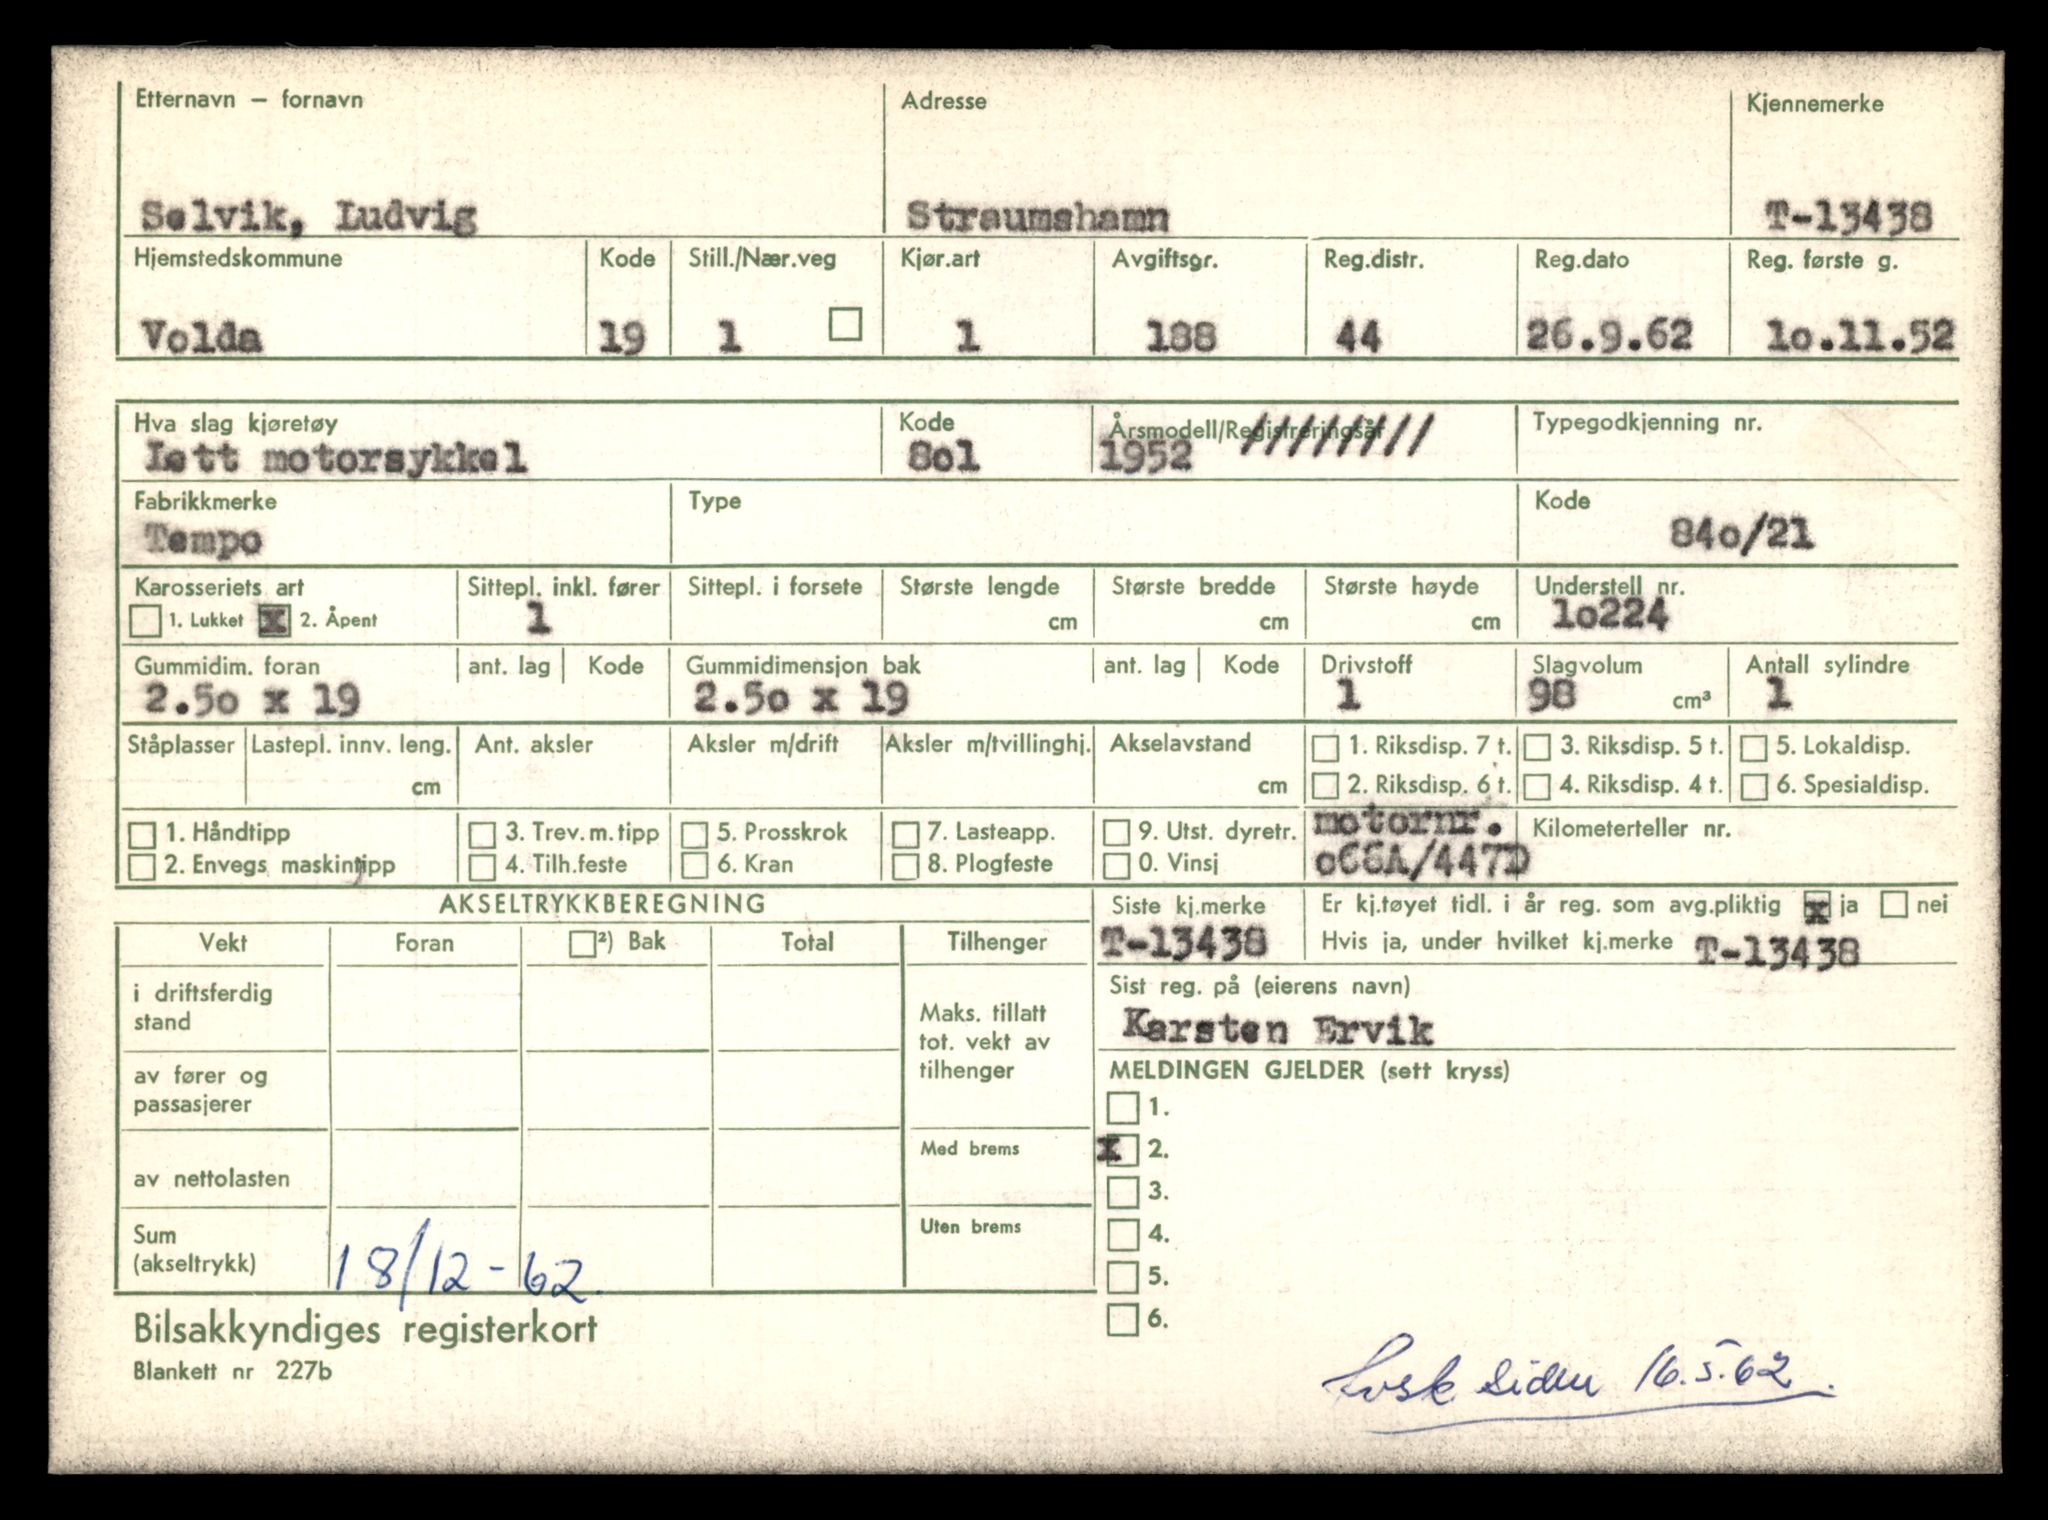 Etternavn – fornavn Adresse Kjennemerke
Selvik, Ludvig Straumshamn T-13438
Hjemstedskommune Kode Still./Nær.veg Kjør.art Avgiftsgr. Reg.distr. Reg.dato Reg. første g.
Volda 19 1 1 188 44 26.9.62 lo.11.52
Hva slag kjøretøy Kode Årsmodell/Registreringsår Typegodkjenning nr.
Lett motorsykkel 8o1 1952 ////////
Fabrikkmerke Type Kode
Tempo 84o/21
Karosseriets art Sittepl. inkl. fører Sittepl. i forsete Største lengde Største bredde Største høyde Understell nr.
1. Lukket x 2. Åpent 1 cm cm cm lo224
Gummidim. foran ant. lag Kode Gummidimensjon bak ant. lag Kode Drivstoff Slagvolum Antall sylindre
2.5o x 19 2.5o x 19 1 98 cm³ 1
Ståplasser Lastepl. innv. leng. Ant. aksler Aksler m/drift Aksler m/tvillinghj. Akselavstand 1. Riksdisp. 7 t. 3. Riksdisp. 5 t. 5. Lokaldisp.
cm cm 2. Riksdisp. 6 t. 4. Riksdisp. 4 t. 6. Spesialdisp.
1. Håndtipp 3. Trev.m.tipp 5. Prosskrok 7. Lasteapp. 9. Utst. dyretr. motornr. Kilometerteller nr.
2. Envegs maskintipp 4. Tilh.feste 6. Kran 8. Plogfeste 0. Vinsj o68A/447D
AKSELTRYKKBEREGNING Siste kj.merke Er kj.tøyet tidl. i år reg. som avg.pliktig x ja nei
Vekt Foran ²) Bak Total Tilhenger T-13438 Hvis ja, under hvilket kj.merke T-13438
i driftsferdig stand Maks. tillatt tot. vekt av tilhenger Sist reg. på (eierens navn)
Karsten Ervik
av fører og passasjerer MELDINGEN GJELDER (sett kryss)
1.
av nettolasten Med brems x 2.
3.
Sum (akseltrykk) 18/12-62. Uten brems 4.
5.
Bilsakkyndiges registerkort 6.
Blankett nr 227b siden 16.5.62.